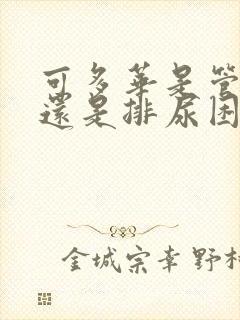 可多華是管
還是排尿困
金城宗幸野村